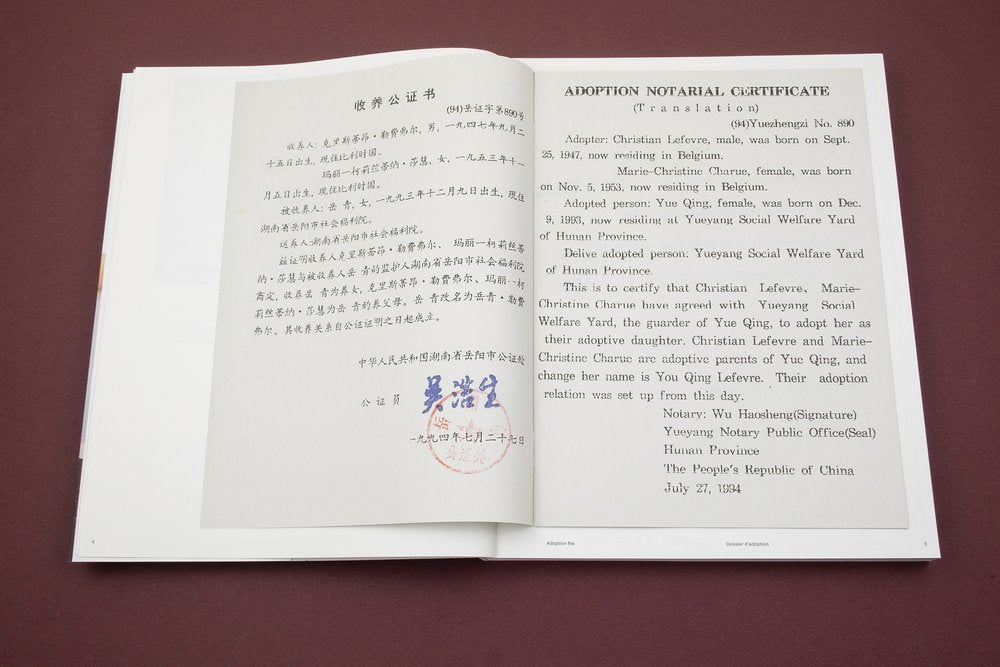 收养公证书
(94)岳证字第890号
收养人：克里斯蒂昂·勒费弗尔，男，一九四七年九月二
十五日出生，现住比利时国。
玛丽一柯莉丝蒂纳·莎慧，女，一九五三年十一
月五日出生，现住比利时国。
被收养人：岳 青，女，一九九三年十二月九日出生，现住
湖南省岳阳市社会福利院。
送养人：湖南省岳阳市社会福利院。
兹证明收养人克里斯蒂昂·勒费弗尔、玛丽一柯莉丝蒂
纳·莎慧与被收养人岳 青的监护人湖南省岳阳市社会福利院
商定，收养岳 青为养女，克里斯蒂昂·勒费弗尔、玛丽一柯
莉丝蒂纳·莎慧为岳 青的养父母。岳 青改名为岳青·勒费
弗尔。其收养关系自公证证明之日起成立。
中华人民共和国湖南省岳阳市公证处
公证员 吴浩生
一九九四年七月二十七日
公证处
4
ADOPTION NOTARIAL CERTIFICATE
(Translation)
(94)Yuezhengzi No. 890
Adopter: Christian Lefevre, male, was born on Sept.
25, 1947, now residing in Belgium.
Marie-Christine Charue, female, was born
on Nov. 5, 1953, now residing in Belgium.
Adopted person: Yue Qing, female, was born on Dec.
9, 1993, now residing at Yueyang Social Welfare Yard
of Hunan Province.
Delive adopted person: Yueyang Social Welfare Yard
of Hunan Province.
This is to certify that Christian Lefevre、 Marie-
Christine Charue have agreed with Yueyang Social
Welfare Yard, the guarder of Yue Qing, to adopt her as
their adoptive daughter. Christian Lefevre and Marie-
Christine Charue are adoptive parents of Yue Qing, and
change her name is You Qing Lefevre. Their adoption
relation was set up from this day.
Notary: Wu Haosheng(Signature)
Yueyang Notary Public Office(Seal)
Hunan Province
The People's Republic of China
July 27, 1994
Adoption file
Dossier d'adoption
5